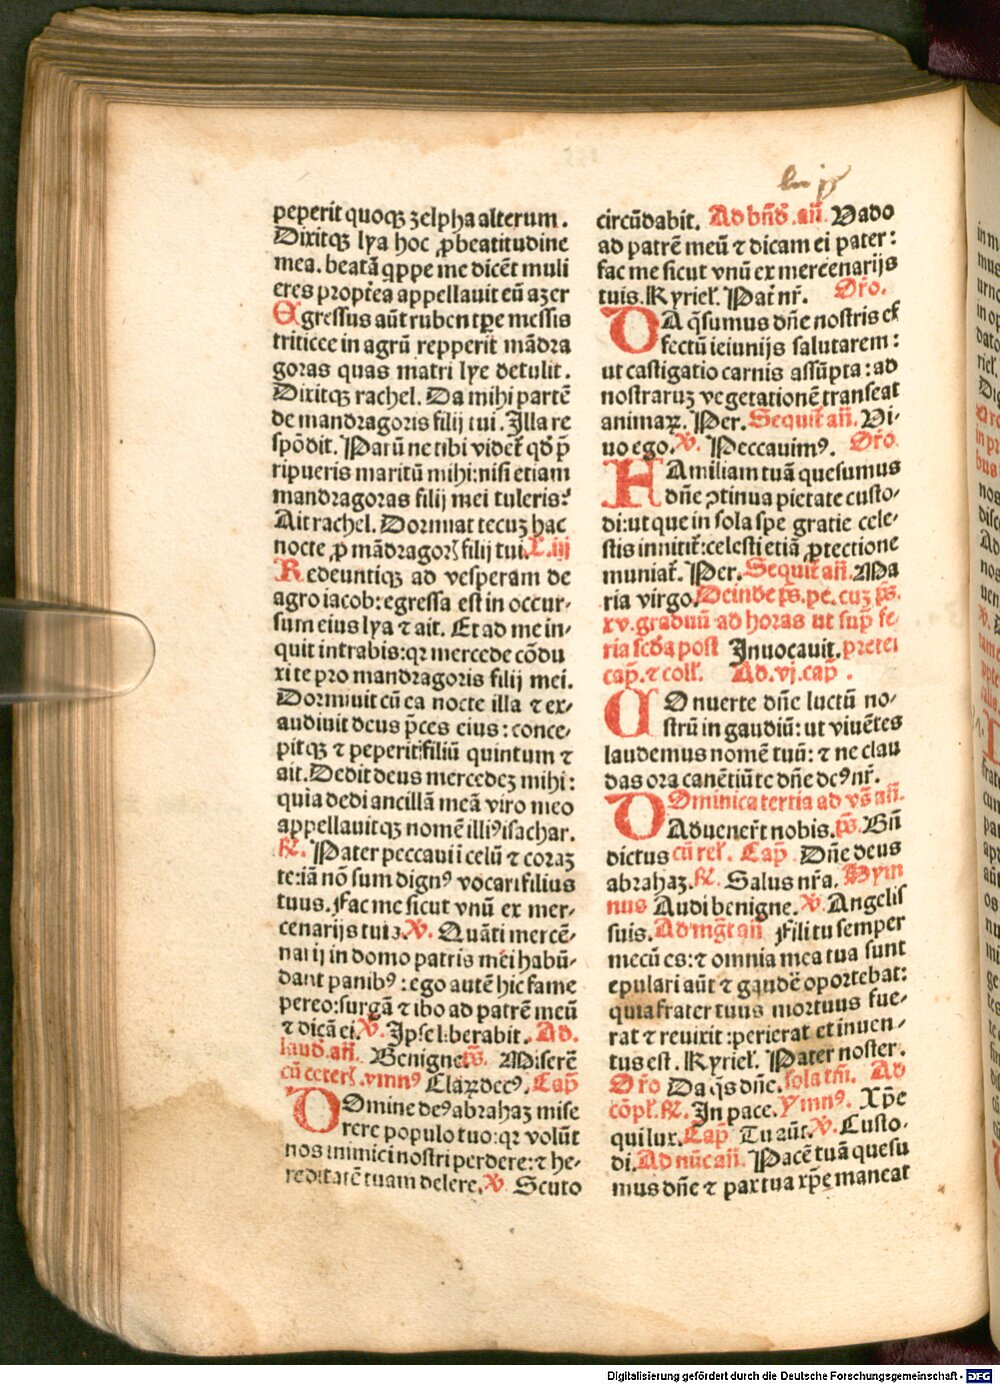 peperit quoqꝫ zelpha alterum.
Dixitqꝫ lya hoc ꝓ beatitudine
mea. beatā q̄ppe me dicēt muli
eres propt̄ea appellauit eū azer
Egressus aūt ruben tp̄e messis
triticee in agrū repperit mādra
goras quas matri lye detulit.
Dixitqꝫ rachel. Da mihi partē
de mandragoris filij tui. Illa re
spōdit. Parū ne tibi videt̄ qd̄ p̄
ripueris maritū mihi: nisi etiam
mandragoras filij mei tuleris?
Ait rachel. Dormiat tecuꝫ hac
nocte ꝓ mādragorꝭ filij tui. L. iij
Redeuntiqꝫ ad vesperam de
agro iacob: egressa est in occur-
sum eius lya ⁊ ait. Et ad me in-
quit intrabis: qꝛ mercede cōdu
xi te pro mandragoris filij mei.
Dormiuit cū ea nocte illa ⁊ ex-
audiuit deus p̄ces eius: conce-
pitqꝫ ⁊ peperit filiū quintum ⁊
ait. Dedit deus mercedeꝫ mihi:
quia dedi ancillā meā viro meo
appellauitqꝫ nomē illiꝰ isachar.
℟. Pater peccaui i celū ⁊ coraꝫ
te: iā nō sum dignꝰ vocari filius
tuus. Fac me sicut vnū ex mer-
cenarijs tuis. ℣. Quāti mercē-
narij in domo patris mei habū-
dant panibꝰ: ego autē hic fame
pereo: surgā ⁊ ibo ad patrē meū
⁊ dicā ei. ℣. Ipse liberabit. Ad.
laud. an̄. Benigne. ps̄. Miserē
cū ceterꝭ. ymnꝰ Claꝝ decꝰ. Cap̄
Domine deꝰ abrahaꝫ mise
rere populo tuo: qꝛ volūt
nos inimici nostri perdere: ⁊ he-
reditatē tuam delere. ℣. Scuto
circūdabit. Ad bn̄d. an̄. Vado
ad patrē meū ⁊ dicam ei pater:
fac me sicut vnū ex mercenarijs
tuis. Kyriel̄. Pat̄ nr̄. Or̄o.
DA q̄sumus dn̄e nostris ef
fectū ieiunijs salutarem:
ut castigatio carnis assūpta: ad
nostraruꝫ vegetationē transeat
animaꝝ. Per. Sequit̄ an̄. Vi-
uo ego. ℣. Peccauimꝰ. Or̄o
FAmiliam tuā quesumus
dn̄e ꝯtinua pietate custo-
di: ut que in sola spe gratie cele-
stis innitit̄: celesti etiā ꝓtectione
muniat̄. Per. Sequit̄ an̄. Ma
ria virgo. Deinde ps̄. pe. cuꝫ ps̄.
xv. graduū ad horas ut sup̄ fe-
ria scd̄a post Inuocauit. preter
cap̄. ⁊ coll̄. Ad. vj. cap̄.
COnuerte dn̄e luctū no-
strū in gaudiū: ut viuētes
laudemus nomē tuū: ⁊ ne clau
das ora canētiū te dn̄e deꝰ nr̄.
DOminica tertia ad vs̄ an̄.
Aduener̄t nobis. ps̄. Bn̄
dictus cū rel̄. Cap̄ Dn̄e deus
abrahaꝫ. ℟. Salus nr̄a. Hym
nus Audi benigne. ℣. Angelis
suis. Ad mḡt an̄ Fili tu semper
mecū es: ⁊ omnia mea tua sunt
epulari aūt ⁊ gaudē oportebat:
quia frater tuus mortuus fue-
rat ⁊ reuixit: perierat et inuen-
tus est. Kyriel̄. Pater noster.
Or̄o Da q̄s dn̄e. sola tm̄. Ad
cōpl̄. ℟. In pace. Ymnꝰ. Xp̄e
qui lux. Cap̄ Tu aūt. ℣. Custo-
di. Ad nūc an̄. Pacē tuā quesu
mus dn̄e ⁊ pax tua xp̄e maneat
Digitalisierung gefördert durch die Deutsche Forschungsgemeinschaft - DFG